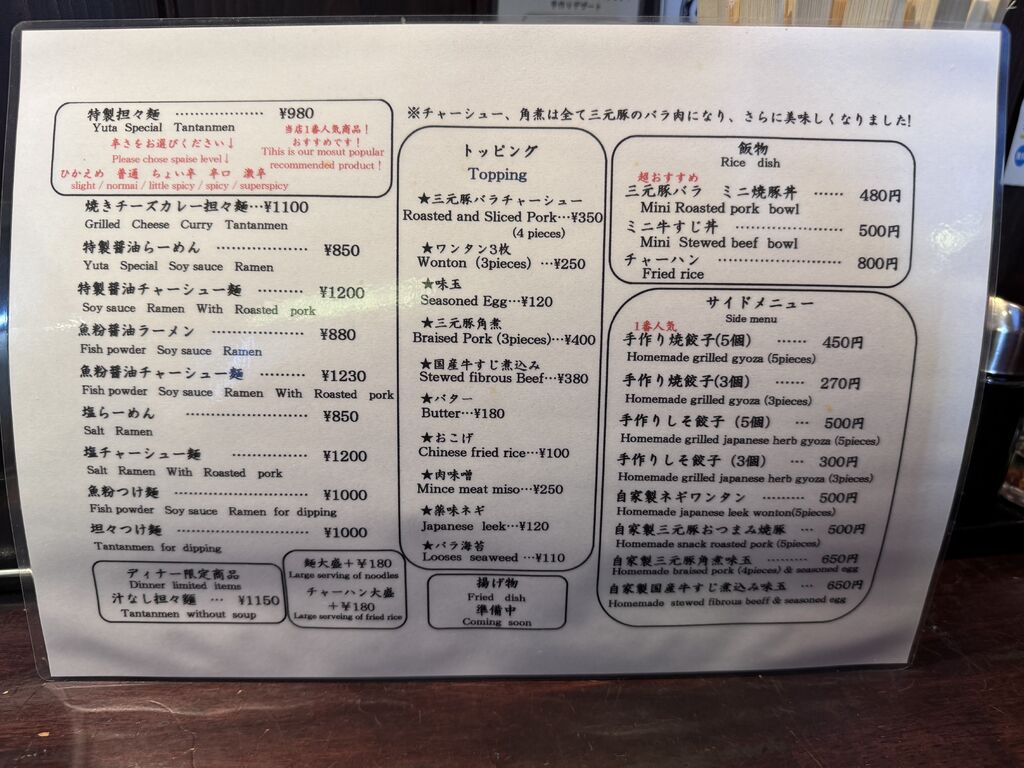 手作りデザート
特製担々麺 ………………… ¥980
Yuta Special Tantanmen
当店1番人気商品！
おすすめです！
Tihis is our mosut popular
recommended product !
辛さをお選びください↓
Please chose spaise level↓
ひかえめ 普通 ちょい辛 辛口 激辛
slight / normai / little spicy / spicy / superspicy
焼きチーズカレー担々麺…¥1100
Grilled Cheese Curry Tantanmen
特製醬油らーめん ………………… ¥850
Yuta Special Soy sauce Ramen
特製醬油チャーシュー麺 ………… ¥1200
Soy sauce Ramen With Roasted pork
魚粉醬油ラーメン ………………… ¥880
Fish powder Soy sauce Ramen
魚粉醬油チャーシュー麺 ………… ¥1230
Fish powder Soy sauce Ramen With Roasted pork
塩らーめん ………………………… ¥850
Salt Ramen
塩チャーシュー麺 ………………… ¥1200
Salt Ramen With Roasted pork
魚粉つけ麺 ………………………… ¥1000
Fish powder Soy sauce Ramen for dipping
坦々つけ麺 ………………………… ¥1000
Tantanmen for dipping
ディナー限定商品
Dinner limited items
汁なし担々麺 … ¥1150
Tantanmen without soup
麺大盛＋¥180
Large serving of noodles
チャーハン大盛
＋¥180
Large serveing of fried rice
※チャーシュー、角煮は全て三元豚のバラ肉になり、さらに美味しくなりました!
トッピング
Topping
★三元豚バラチャーシュー
Roasted and Sliced Pork…¥350
(4 pieces)
★ワンタン3枚
Wonton (3pieces) …¥250
★味玉
Seasoned Egg…¥120
★三元豚角煮
Braised Pork (3pieces)…¥400
★国産牛すじ煮込み
Stewed fibrous Beef…¥380
★バター
Butter…¥180
★おこげ
Chinese fried rice…¥100
★肉味噌
Mince meat miso…¥250
★薬味ネギ
Japanese leek…¥120
★バラ海苔
Looses seaweed …¥110
揚げ物
Fried dish
準備中
Coming soon
飯物
Rice dish
超おすすめ
三元豚バラ ミニ焼豚丼 …… 480円
Mini Roasted pork bowl
ミニ牛すじ丼 ………………… 500円
Mini Stewed beef bowl
チャーハン …………………… 800円
Fried rice
サイドメニュー
Side menu
1番人気
手作り焼餃子(5個) …… 450円
Homemade grilled gyoza (5pieces)
手作り焼餃子(3個) …… 270円
Homemade grilled gyoza (3pieces)
手作りしそ餃子 (5個) … 500円
Homemade grilled japanese herb gyoza (5pieces)
手作りしそ餃子 (3個) … 300円
Homemade grilled japanese herb gyoza (3pieces)
自家製ネギワンタン ……… 500円
Homemade japanese leek wonton(5pieces)
自家製三元豚おつまみ焼豚 … 500円
Homemade snack roasted pork (5pieces)
自家製三元豚角煮味玉 …… 650円
Homemade braised pork (4pieces) & seasoned egg
自家製国産牛すじ煮込み味玉 … 650円
Homemade stewed fibrous beeff & seasoned egg